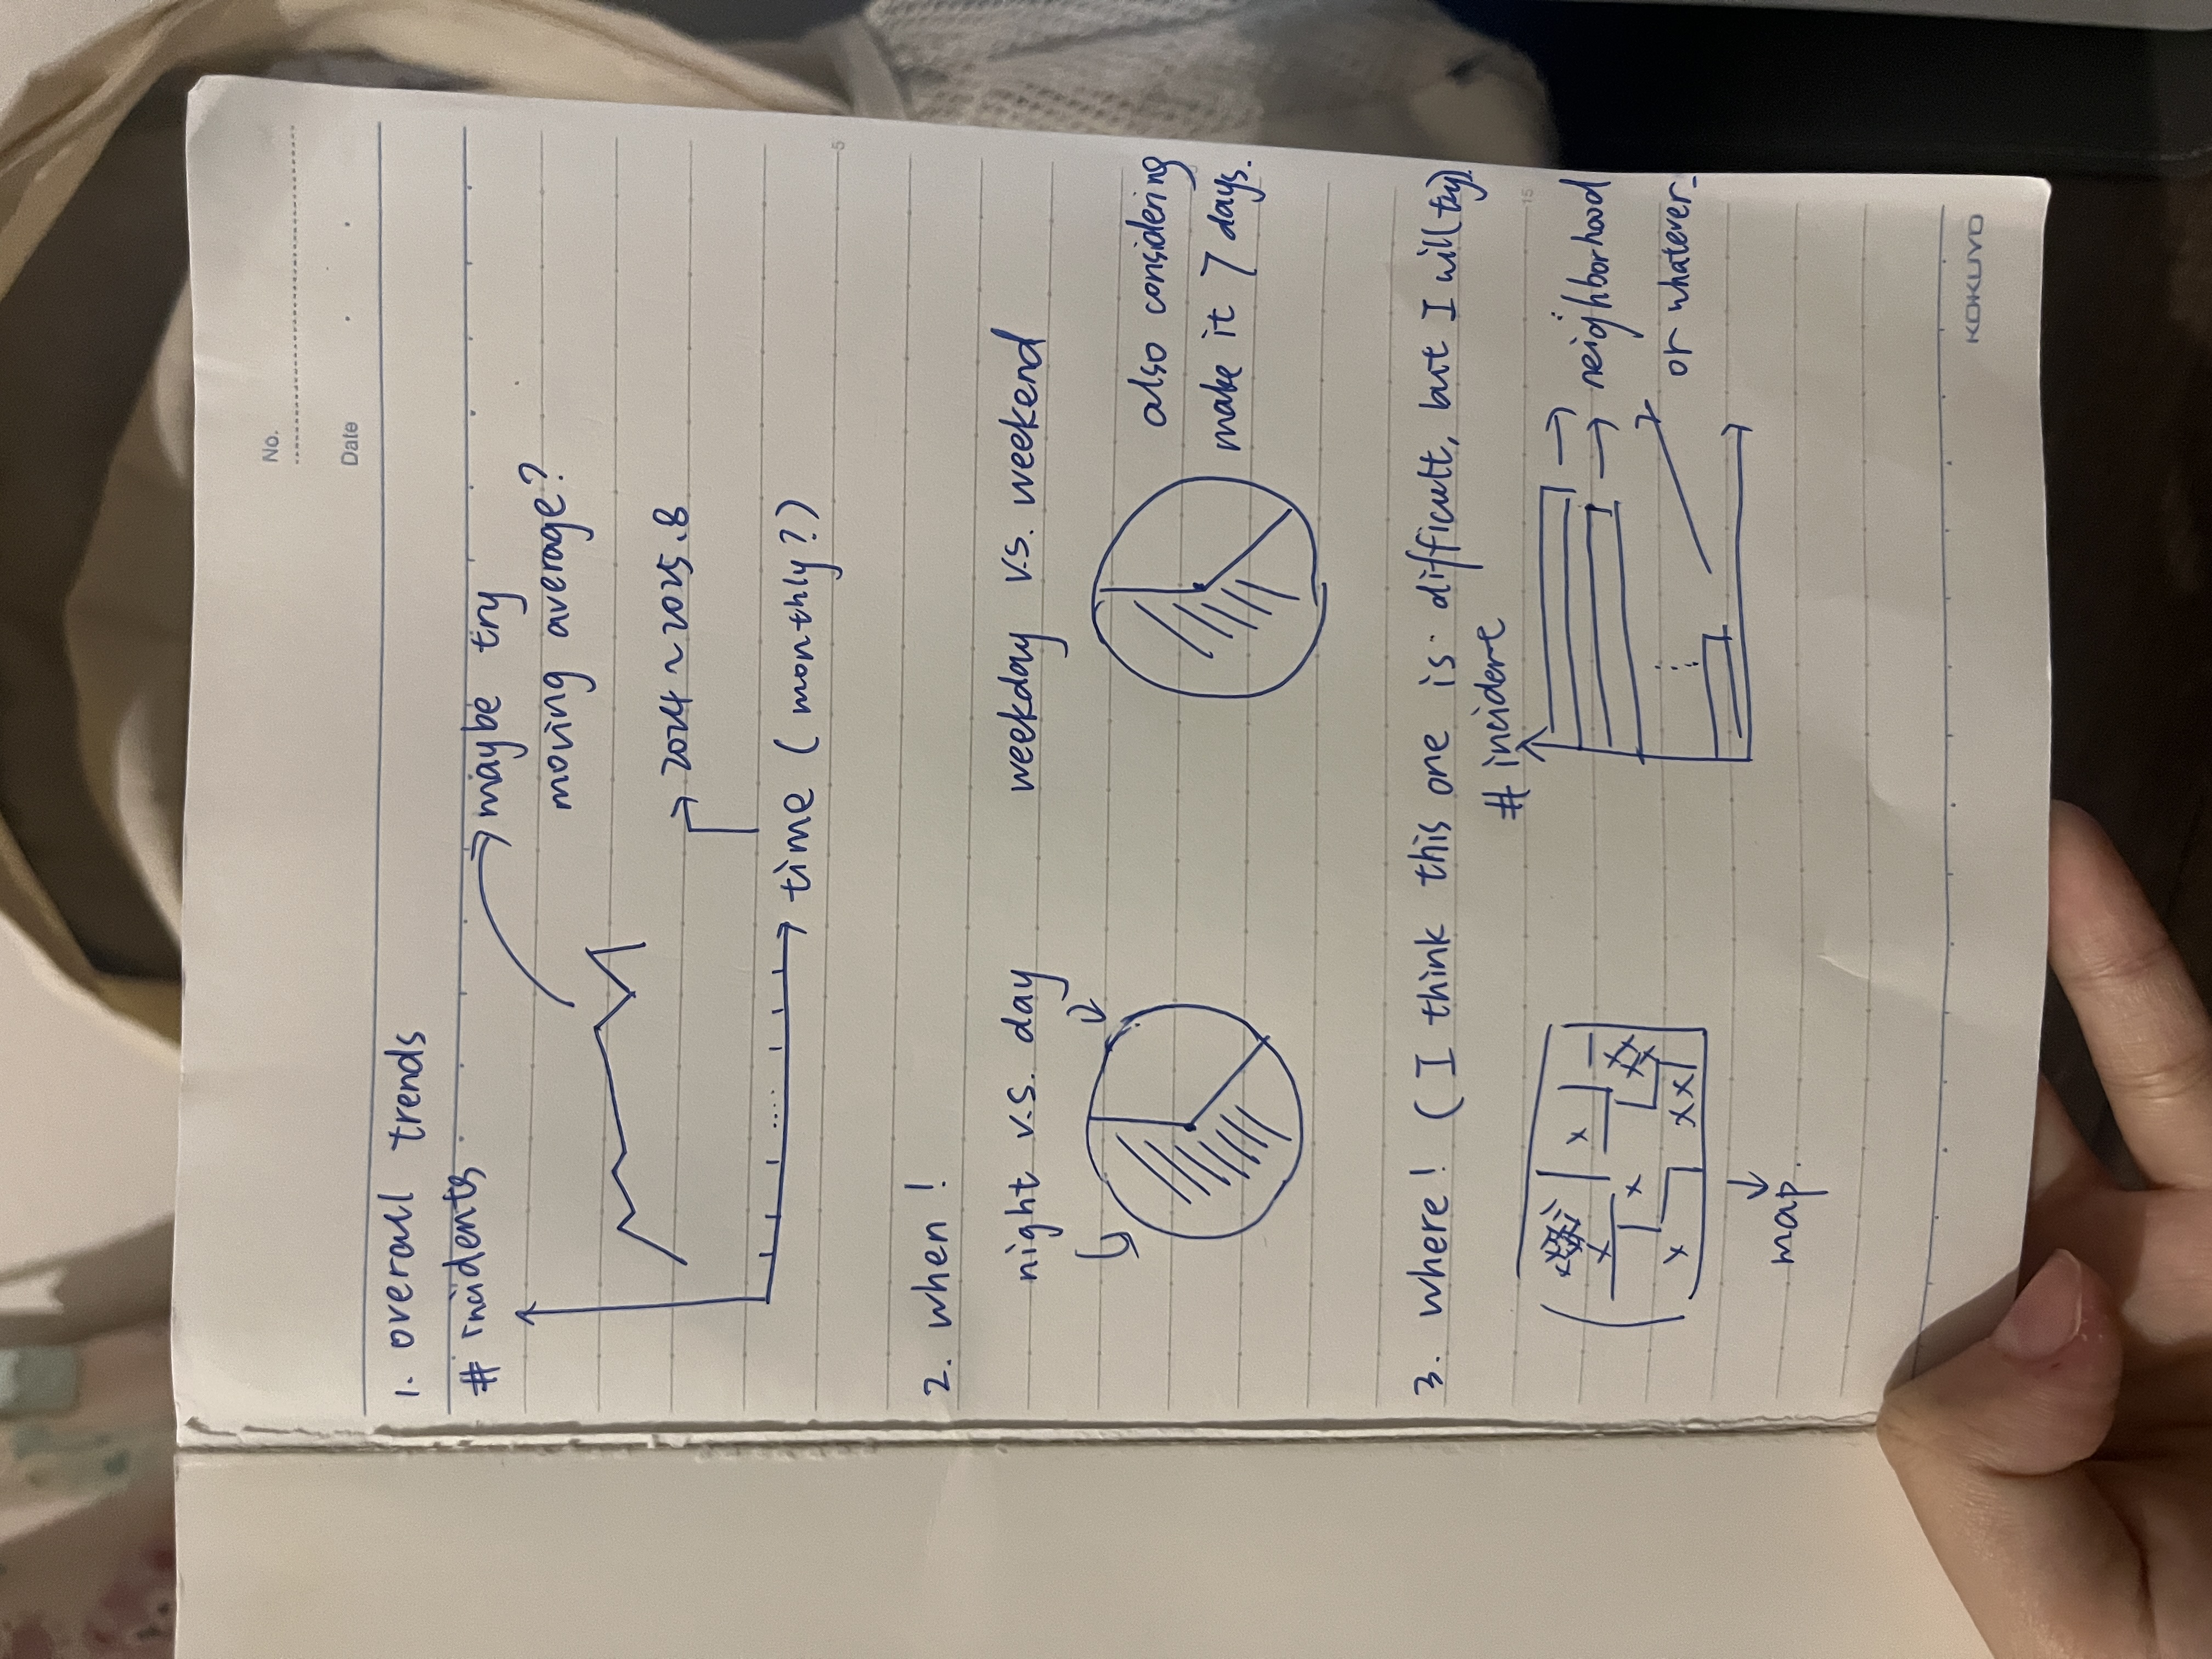 No.
Date
1. overall trends
# incidents
maybe try
moving average?
2024 ~ 2025.8
time (monthly?)
5
2. when!
night v.s. day
weekday v.s. weekend
also considering
make it 7 days.
3. where! (I think this one is difficult, but I will (try).
# incident
15
neighborhood
or whatever
map.
KOKUYO